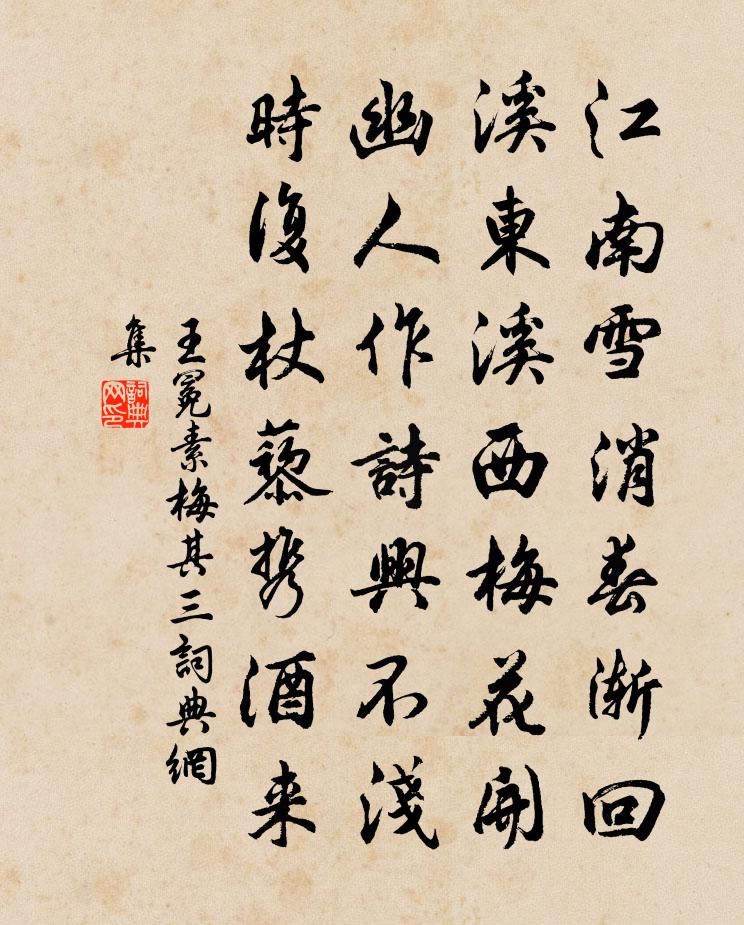 江南雪消春漸回
溪東溪西梅花開
幽人作詩興不淺
時復杖藜携酒来
王冕素梅其三詞典網
集
詞典网印